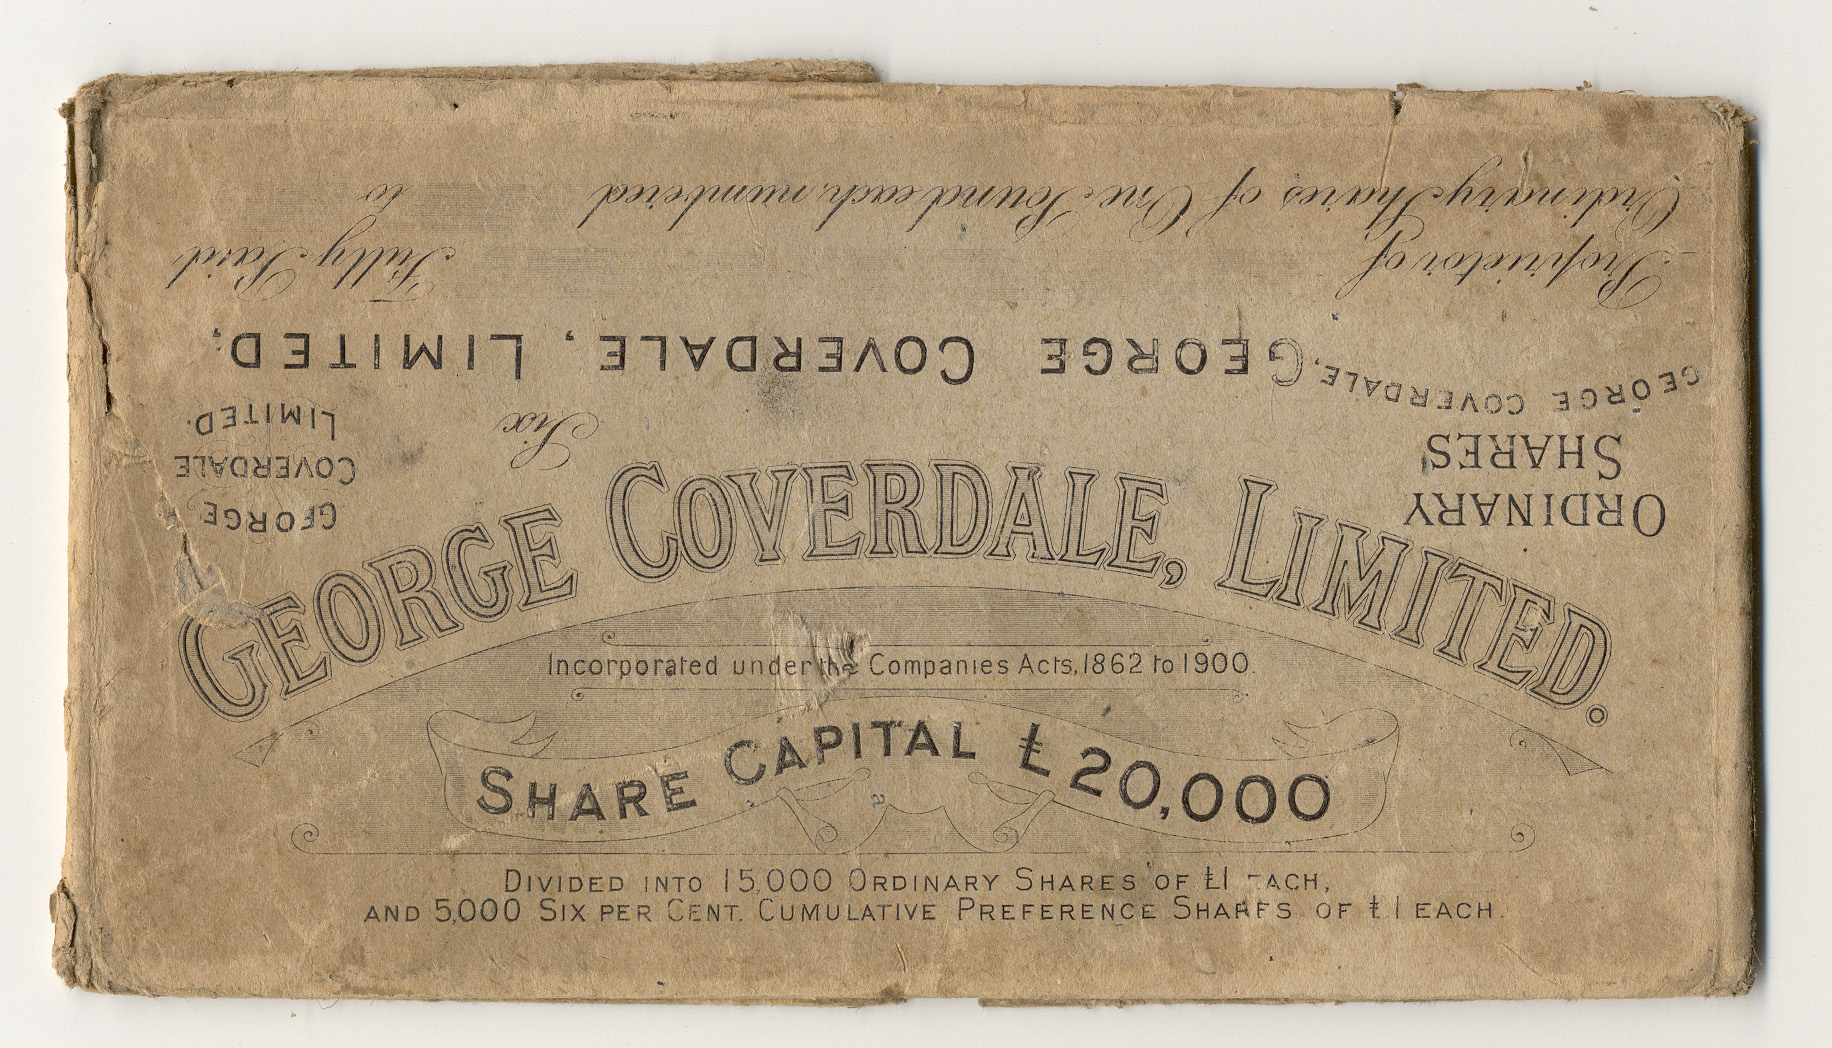 GEORGE COVERDALE, LIMITED.
Incorporated under the Companies Acts, 1862 to 1900.
SHARE CAPITAL £20,000
DIVIDED INTO 15,000 ORDINARY SHARES OF £1 EACH,
AND 5,000 SIX PER CENT. CUMULATIVE PREFERENCE SHARES OF £1 EACH.
ORDINARY
SHARES
GEORGE COVERDALE,
GEORGE
COVERDALE
LIMITED.
Six
GEORGE GEORGE COVERDALE, LIMITED,
Proprietor of Fully Paid
Ordinary Shares of One Pound each, numbered to